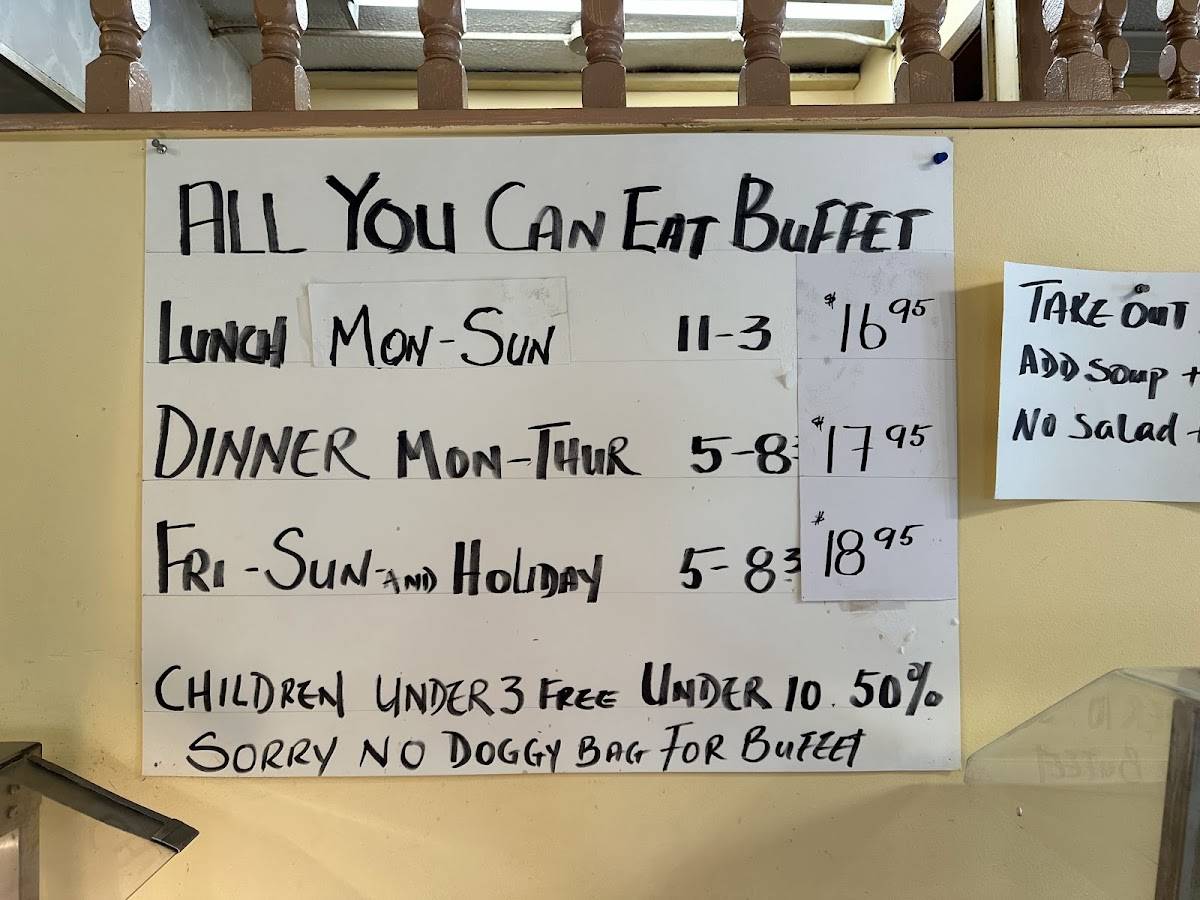 ALL YOU CAN EAT BUFFET
LUNCH MON-SUN 11-3 $16.95
DINNER MON-THUR 5-8 $17.95
FRI-SUN-AND HOLIDAY 5-8 3 $18.95
CHILDREN UNDER 3 FREE UNDER 10. 50%
SORRY NO DOGGY BAG FOR BUFFET
TAKE OUT
ADD SOUP +
NO SALAD -